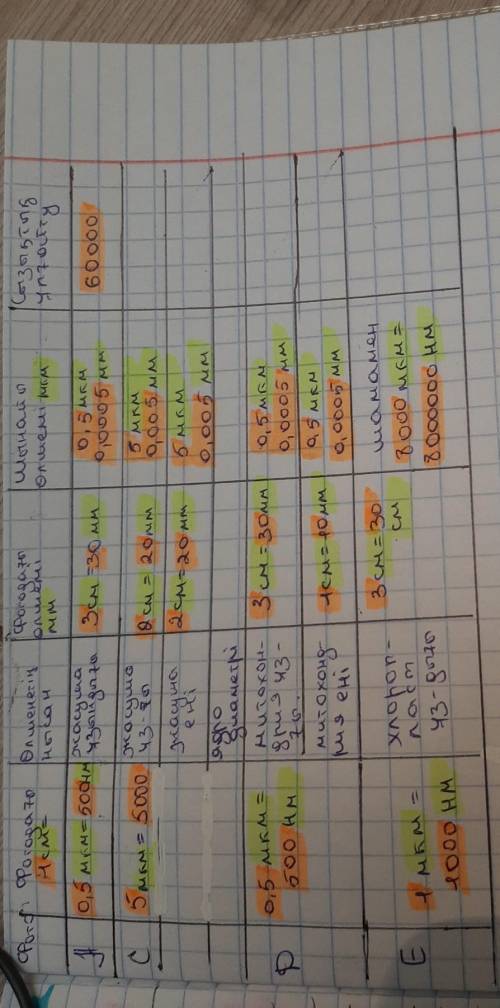 Фото Фотодағы 1 см= Өлшенетін нысан Фотодағы өлшемі мм Шынайы өлшемі мкм Сызықтық ұлғайту
A 0,5 мкм=500 нм жасуша ұзындығы 3 см=30 мм 0,5 мкм 0,0005 мм 60000
C 5 мкм = 5000 жасуша ұз-ғы 2 см = 20 мм 5 мкм 0,005 мм
жасуша ені 2 см=20 мм 5 мкм 0,005 мм
ядро диаметрі
D 0,5 мкм = 500 нм митохон-
дрия ұз-
ғы 3 см=30 мм 0,5 мкм 0,0005 мм
митохонд-
рия ені 1 см=10 мм 0,5 мкм 0,0005 мм
E 1 мкм = 1000 нм хлороп-
ласт
ұз-дығы 3 см=30 см шамамен 8000 мкм= 8000000 нм